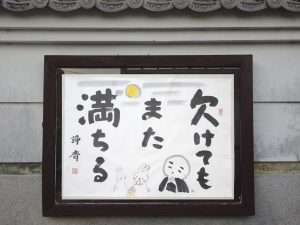 欠けても
また
満ちる